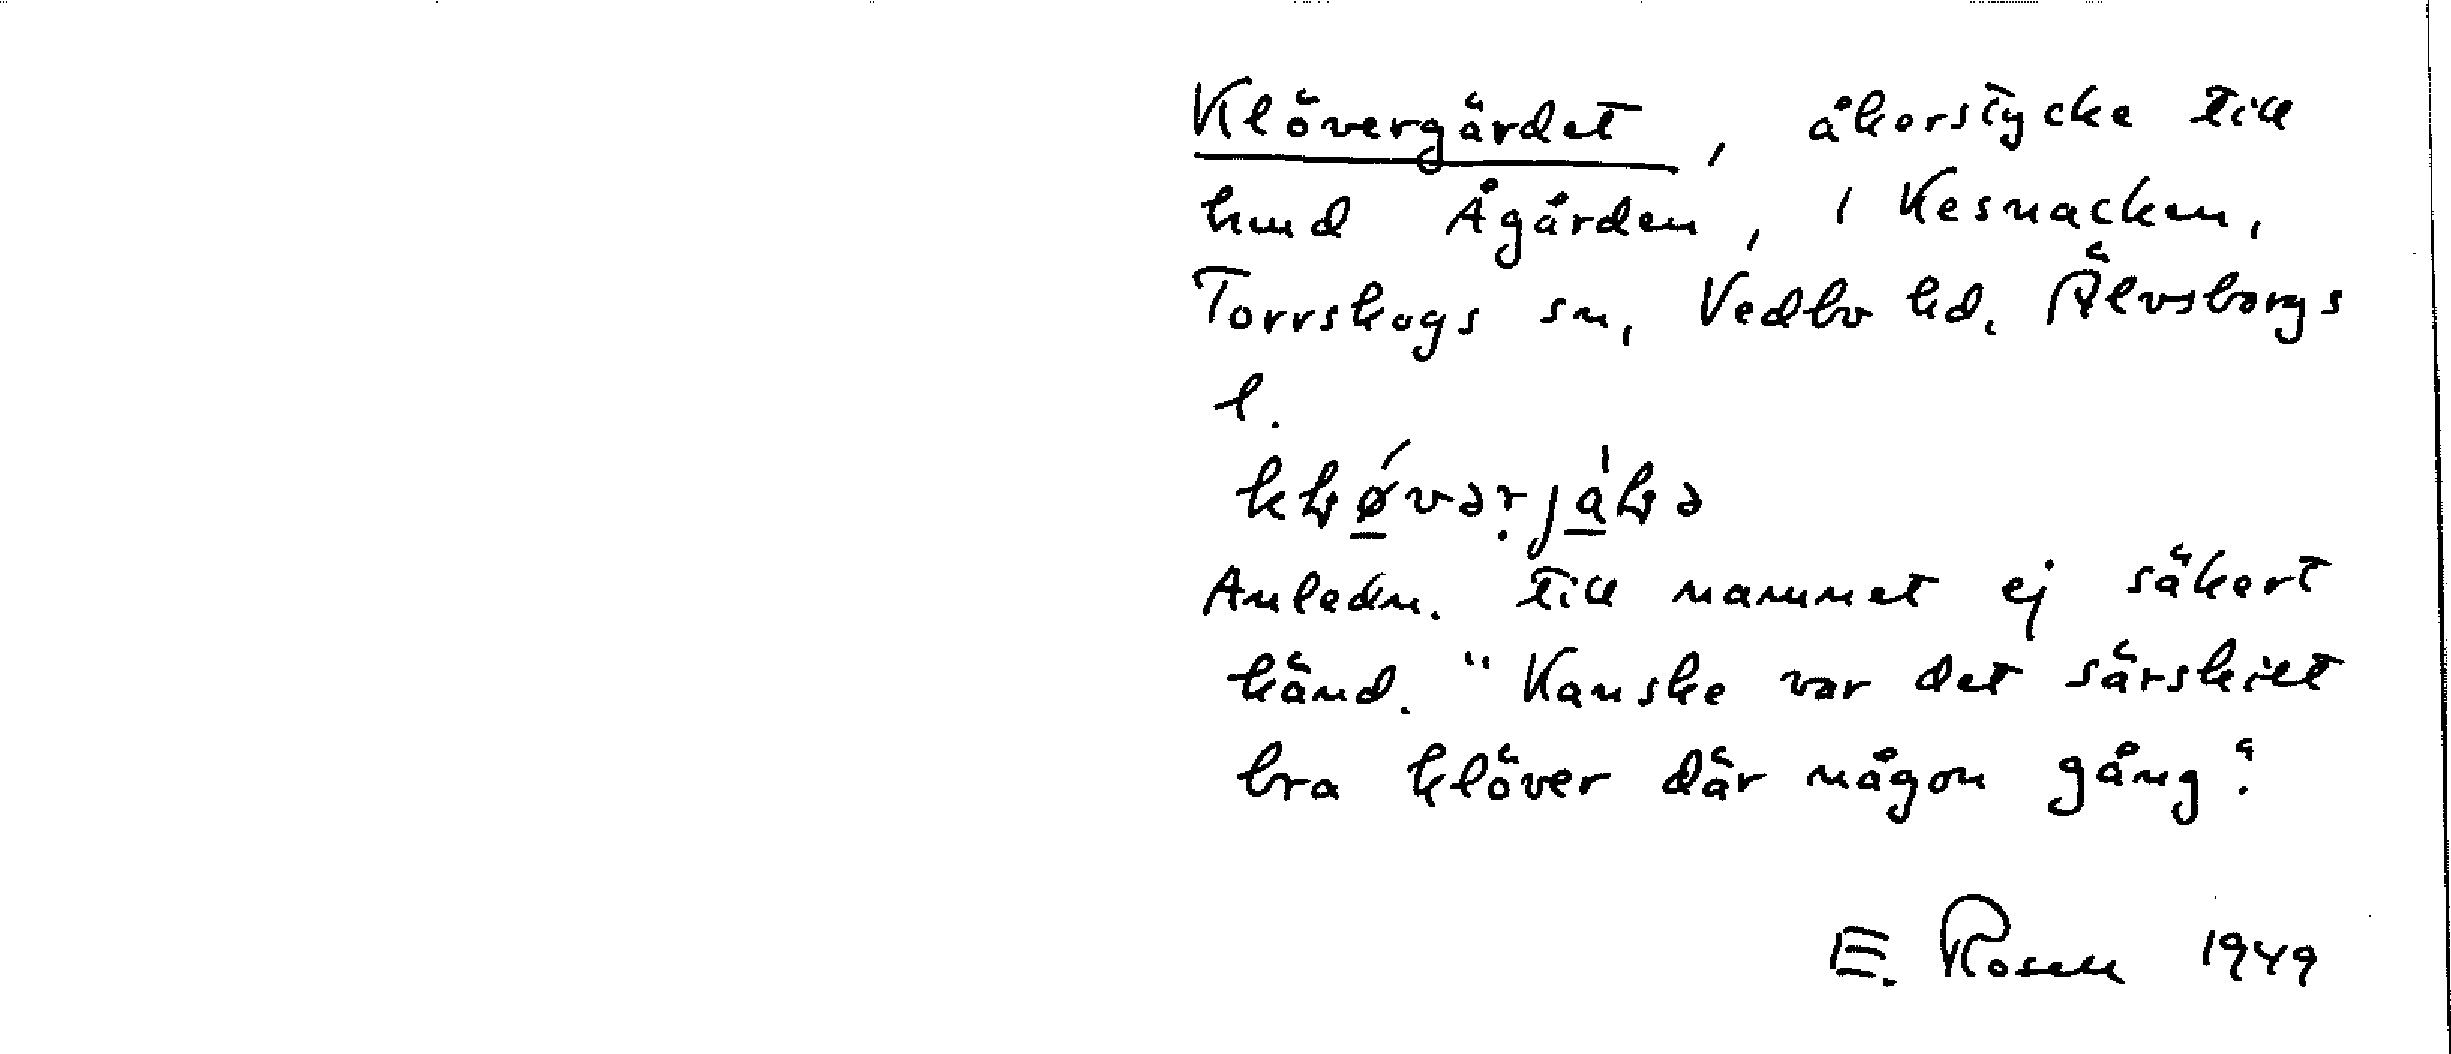 Klövergärdet, åkerstycke till
hmd Ågården, i Kesnacken,
Torrskogs sn, Vedbo hd, Älvsborgs
l.
Anledn. till namnet ej säkert
känd. "Kanske var det särskilt
bra klöver där någon gång".
E. Rosell 1949